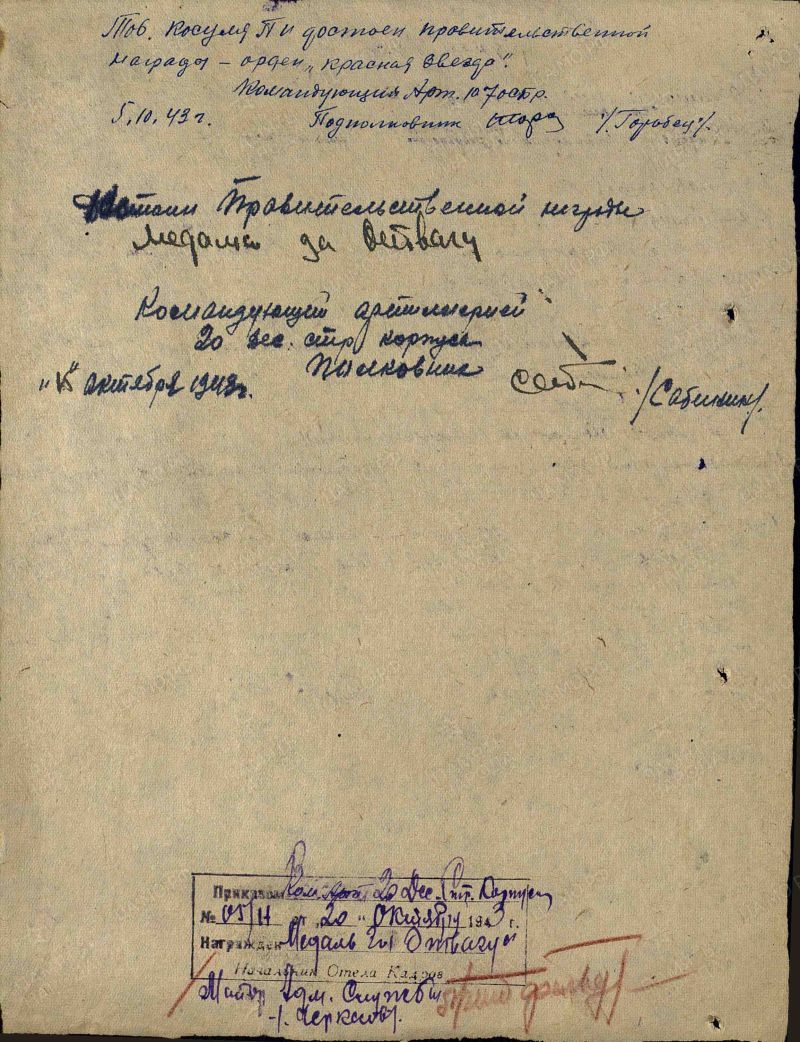 Тов. Косуля П И достоен правительственной
награды – орден „красная звезда".
Командующий Арт. 107 остр.
5.10.43 г. Подполковник /Горобец/.
Достоин Правительственной награды
Медали за Отвагу
Командующий артиллерией
20 дес. стр корпуса
Полковник
" " октября 1943г.
Приказом Ком. Арт. 20 Дес. Стр. Корпуса
№ 05/Н от „20" Октября 1943 г.
Награжден Медаль За Отвагу
Начальник Отдела Кадров
Майор Адм. Службы